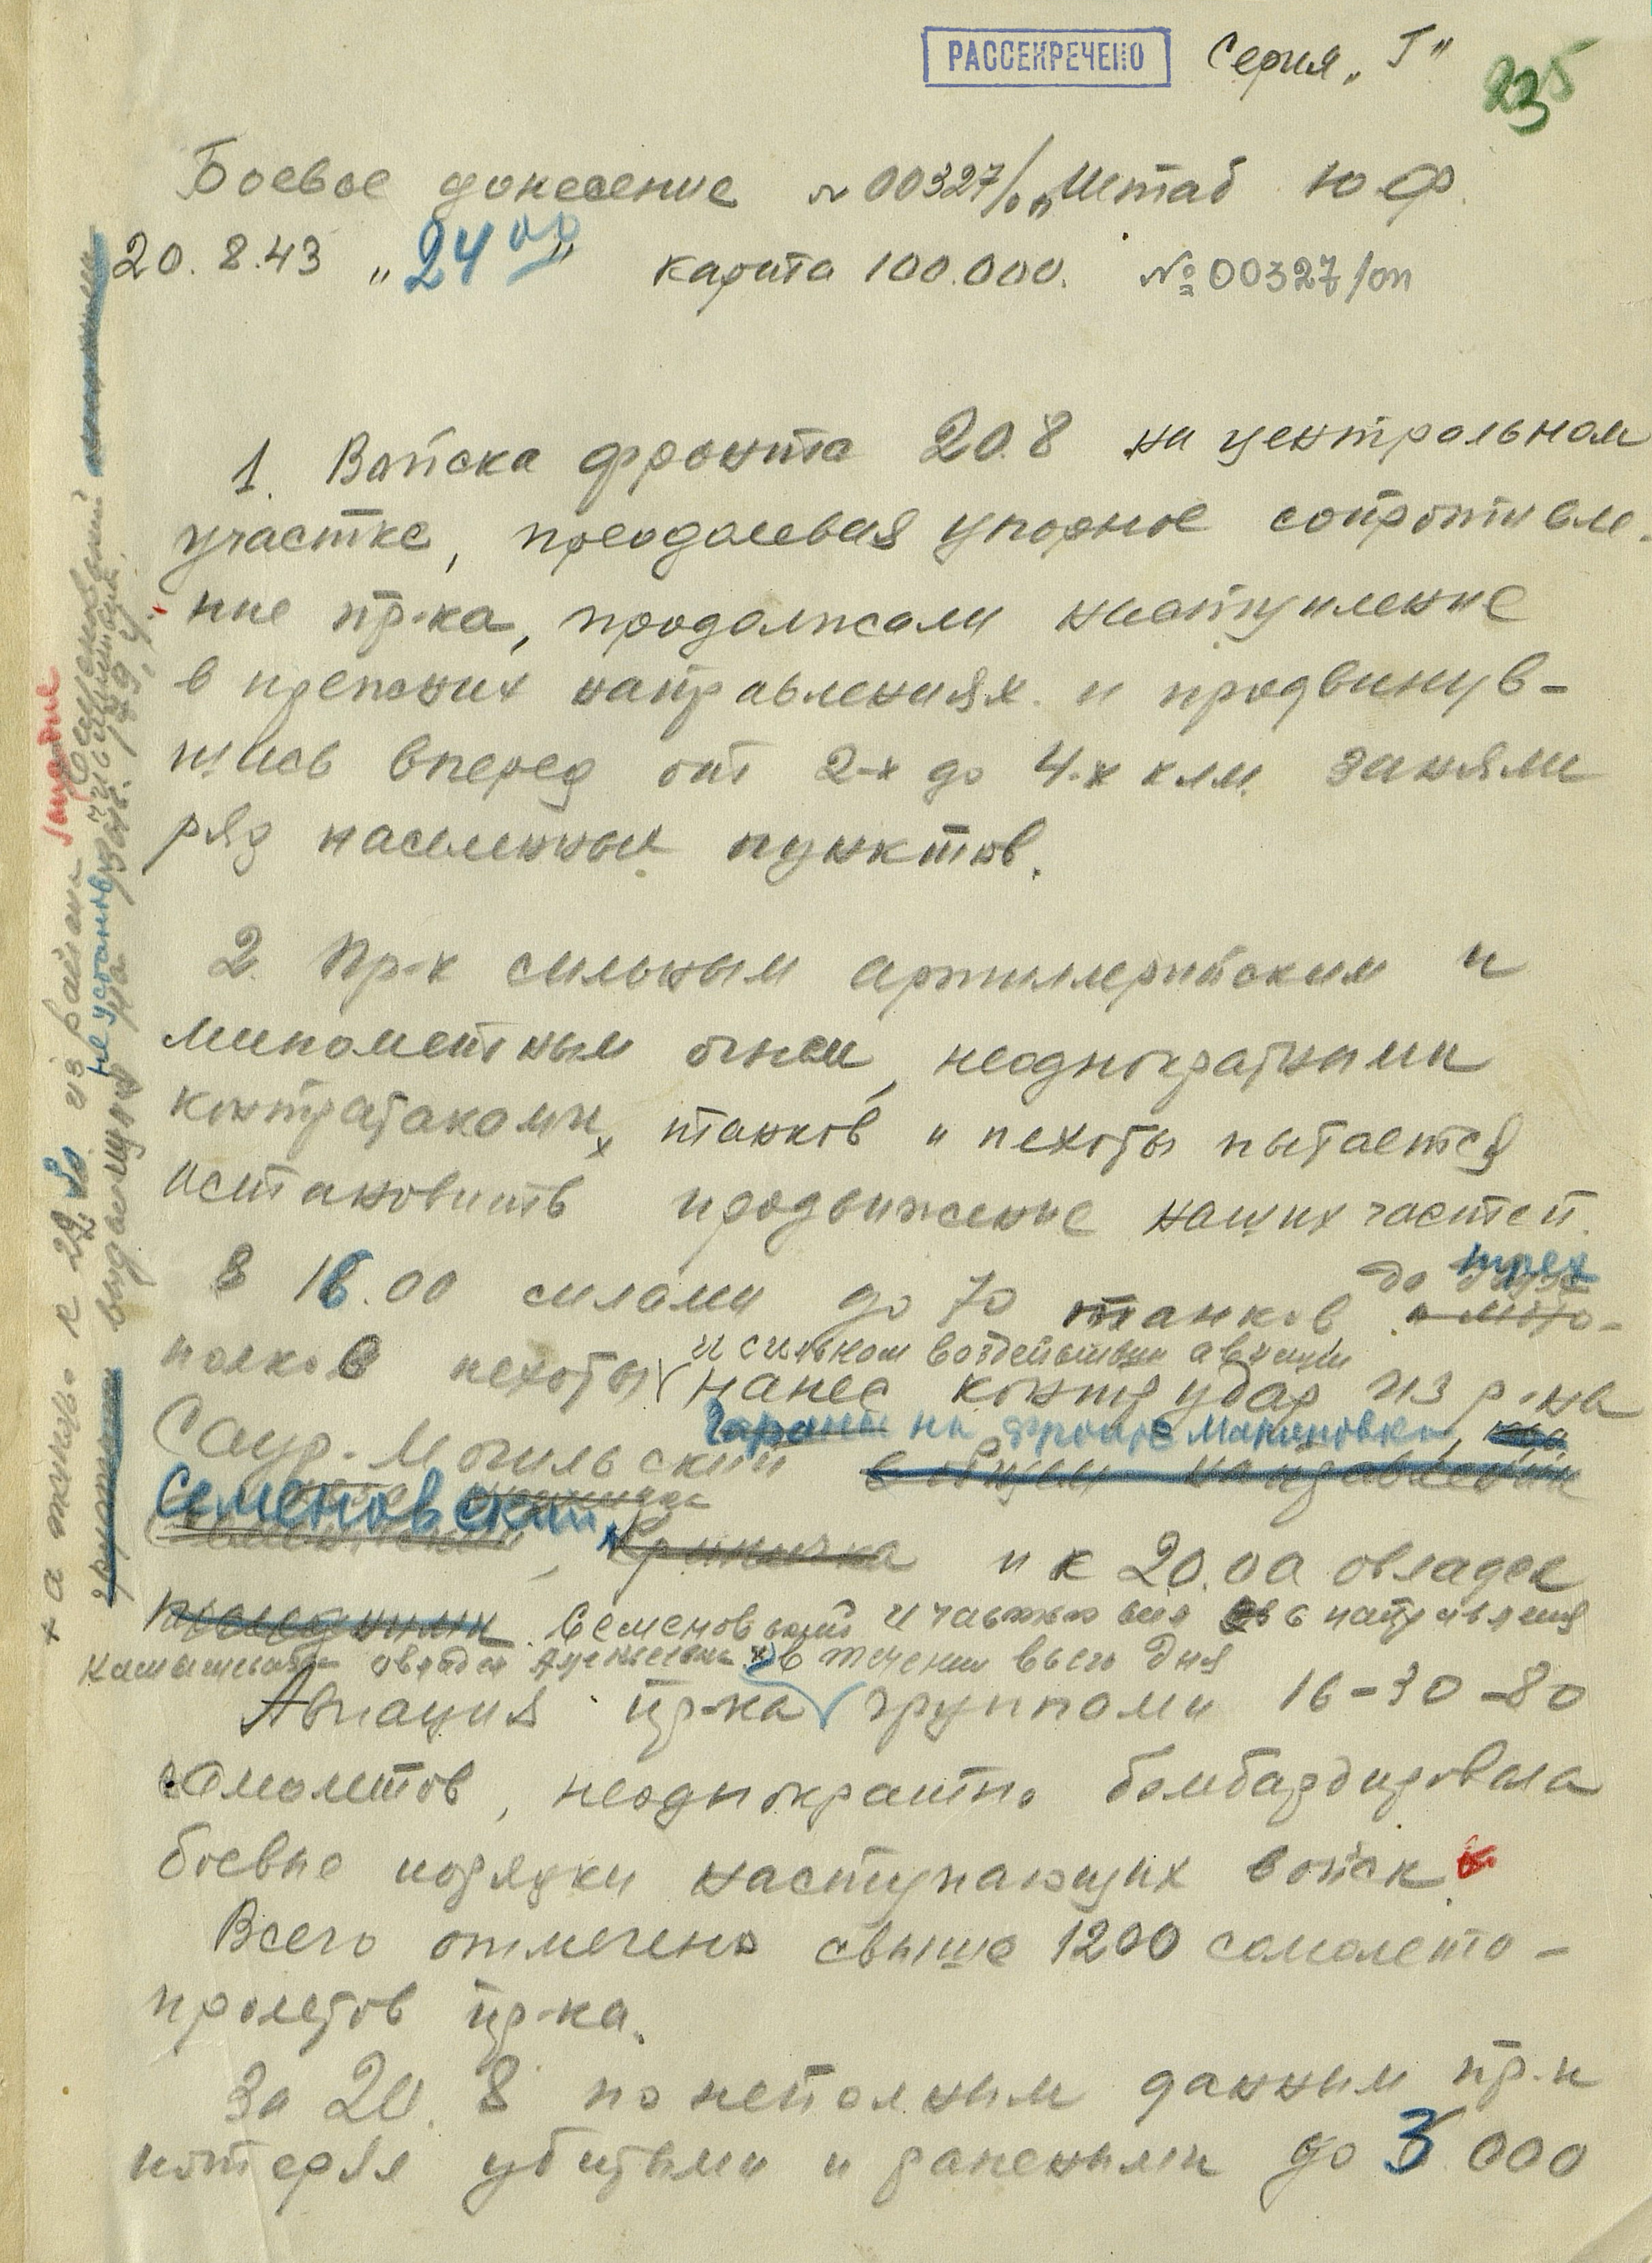 РАССЕКРЕЧЕНО Серия „Г"
235
Боевое донесение № 00327/оп Штаб ЮФ.
20.8.43 „24 00" карта 100.000. № 00327/оп
1. Войска фронта 20.8 на центральном
участке, преодолевая упорное сопротивле-
ние пр-ка, продолжали наступление
в прежних направлениях и продвинув-
шись вперед от 2-х до 4-х клм. заняли
ряд населенных пунктов.
2. Пр-к сильным артиллерийским и
минометным огнем, неоднократными
контратаками танков и пехоты пытается
остановить продвижение наших частей.
до трех
В 16.00 силами до 70 танков и мото-
и сильном воздействии авиации
полков пехоты нанес контрудар из р-на
Гараны на фронте Мариновка,
Саур-Могильский в общем направлении
Семеновский,
Криничка и к 20.00 овладел
Семеновский и частью сил в направлении
овладел в течении всего дня
Авиация пр-ка группами 16-30-80
самолетов, неоднократно бомбардировала
боевые порядки наступающих войск.
Всего отмечено свыше 1200 самолето-
пролетов пр-ка.
За 20.8 по неполным данным пр-к
потерял убитыми и ранеными до 3000
+ а также к 22 30 из района Семеновский
не установ
выдвинув на